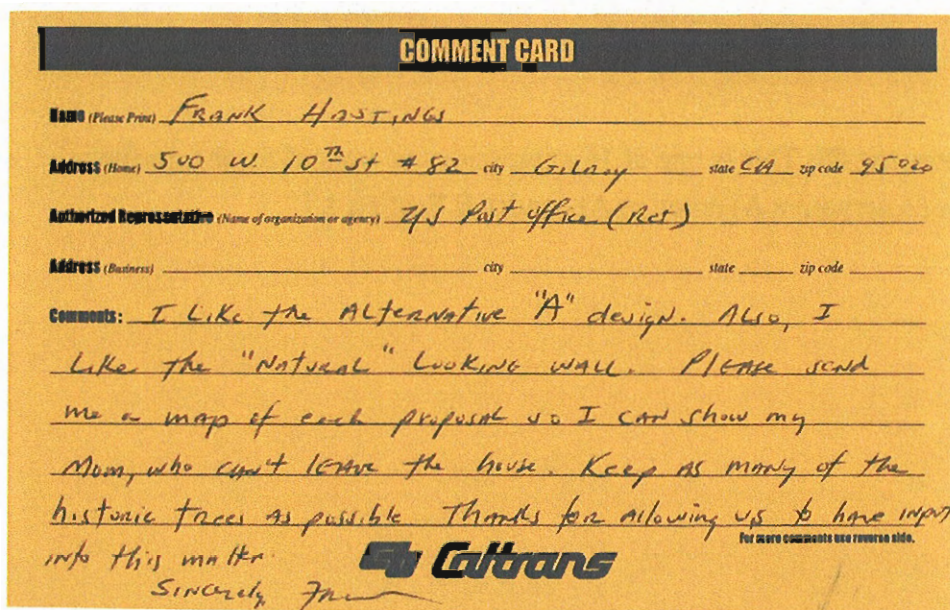 COMMENT CARD
Name (Please Print) FRANK HASTINGS
Address (Home) 500 W. 10TH St #82 city Gilroy state CA zip code 95020
Authorized Representative (Name of organization or agency) US Post Office (Ret)
Address (Business) city state zip code
Comments: I Like the ALTERNATIVE "A" design. ALSO, I
Like the "NATURAL" LOOKING WALL. PLEASE send
me a map of each proposal so I CAN show my
Mom, who can't LEAVE the house. Keep AS MANY of the
historic trees AS possible Thanks for Allowing us to have input
For more comments use reverse side.
into this matter.
Caltrans
SINCERELY,